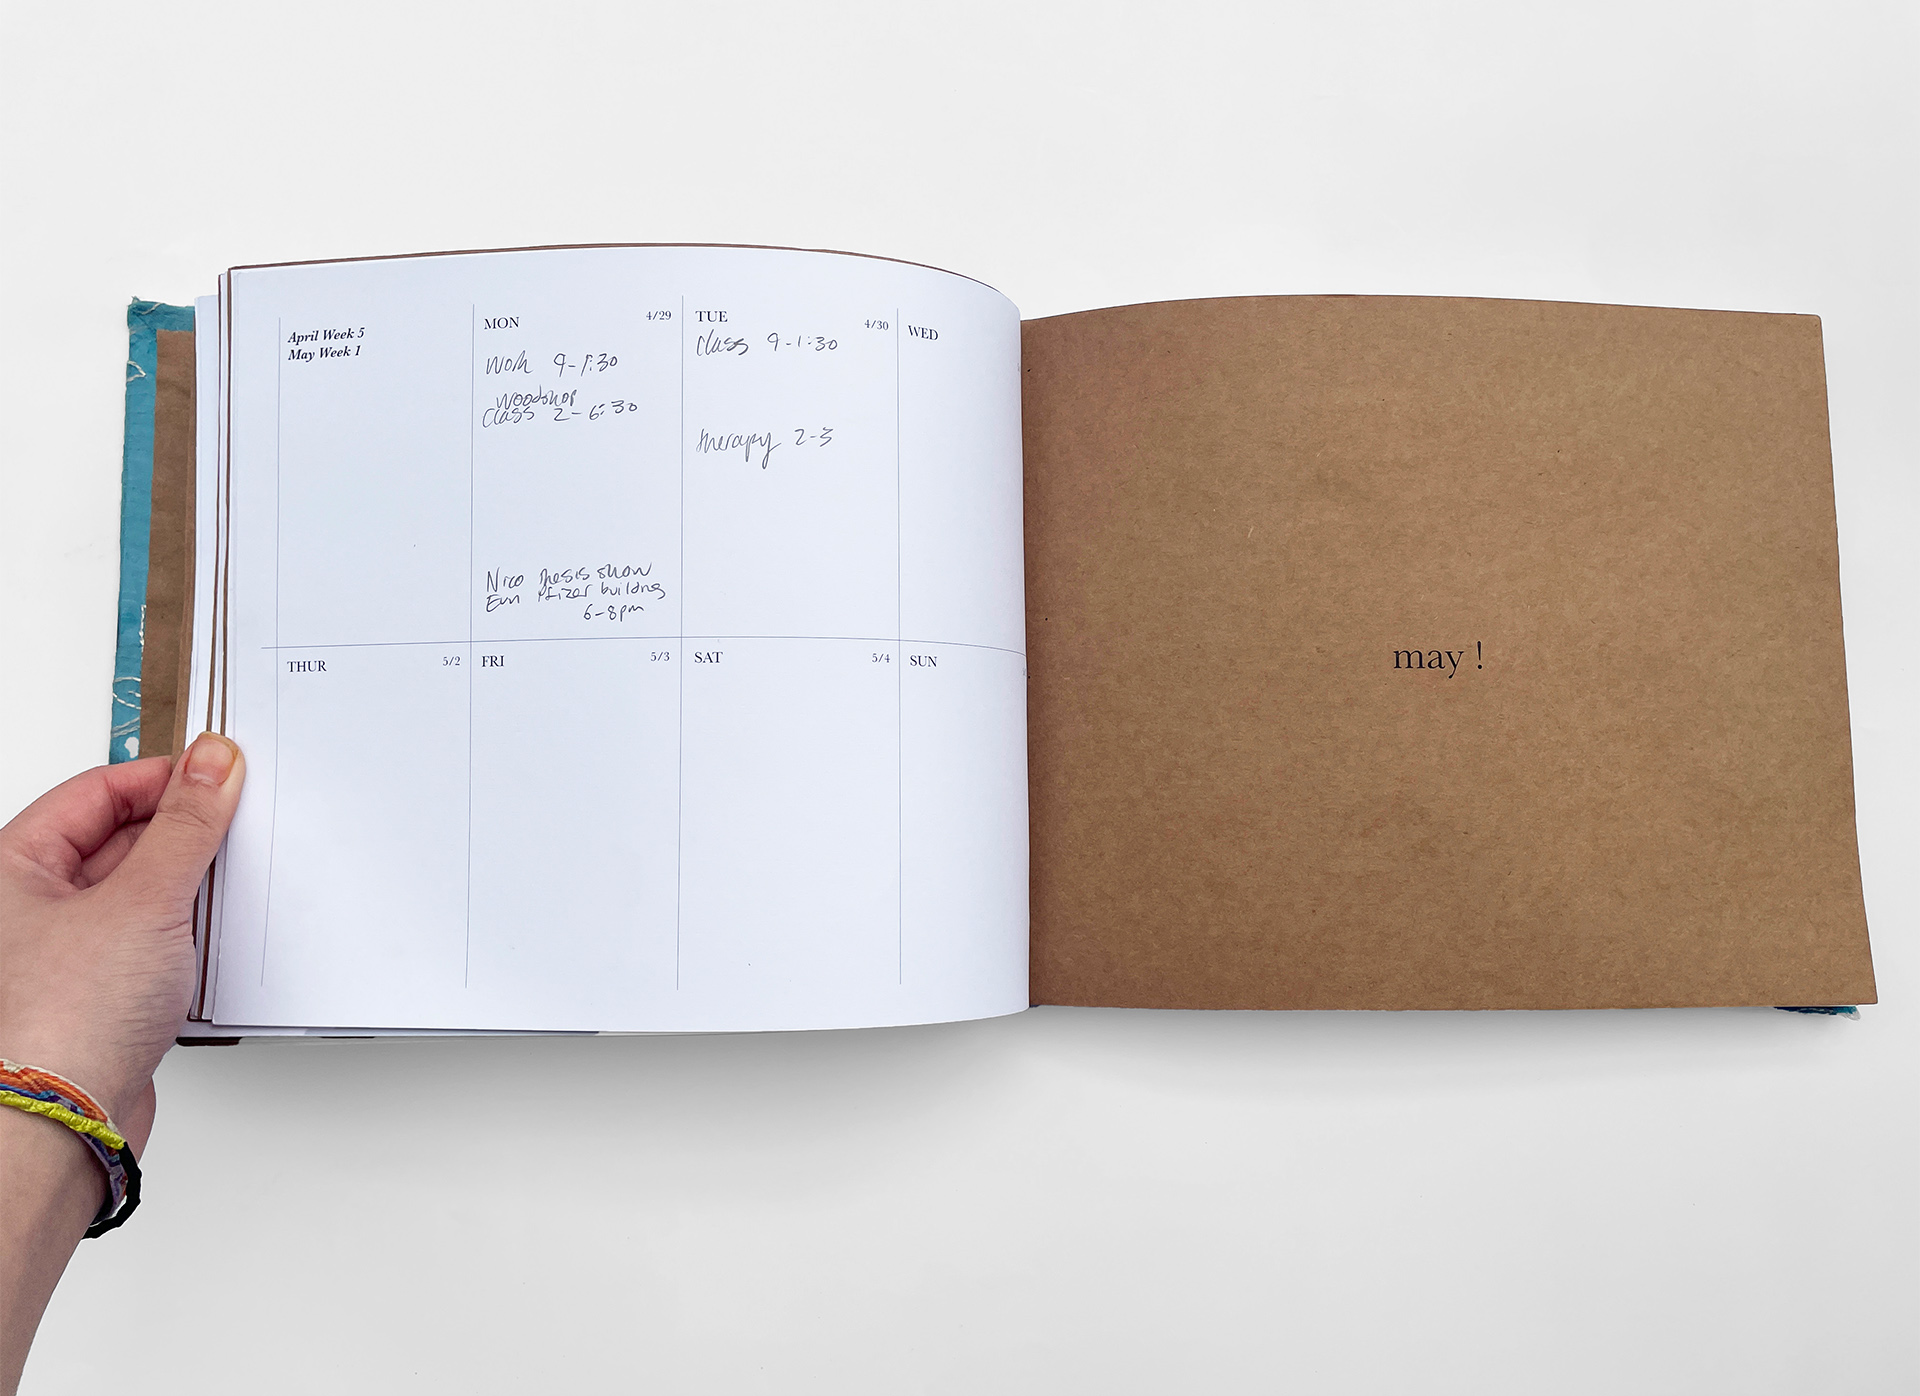 April Week 5
May Week 1
MON 4/29
Work 9-1:30
woodshop
Class 2-6:30
Nico thesis show
Evan Pfizer building
6-8pm
TUE 4/30
Class 9-1:30
therapy 2-3
WED
THUR 5/2
FRI 5/3
SAT 5/4
SUN
may !